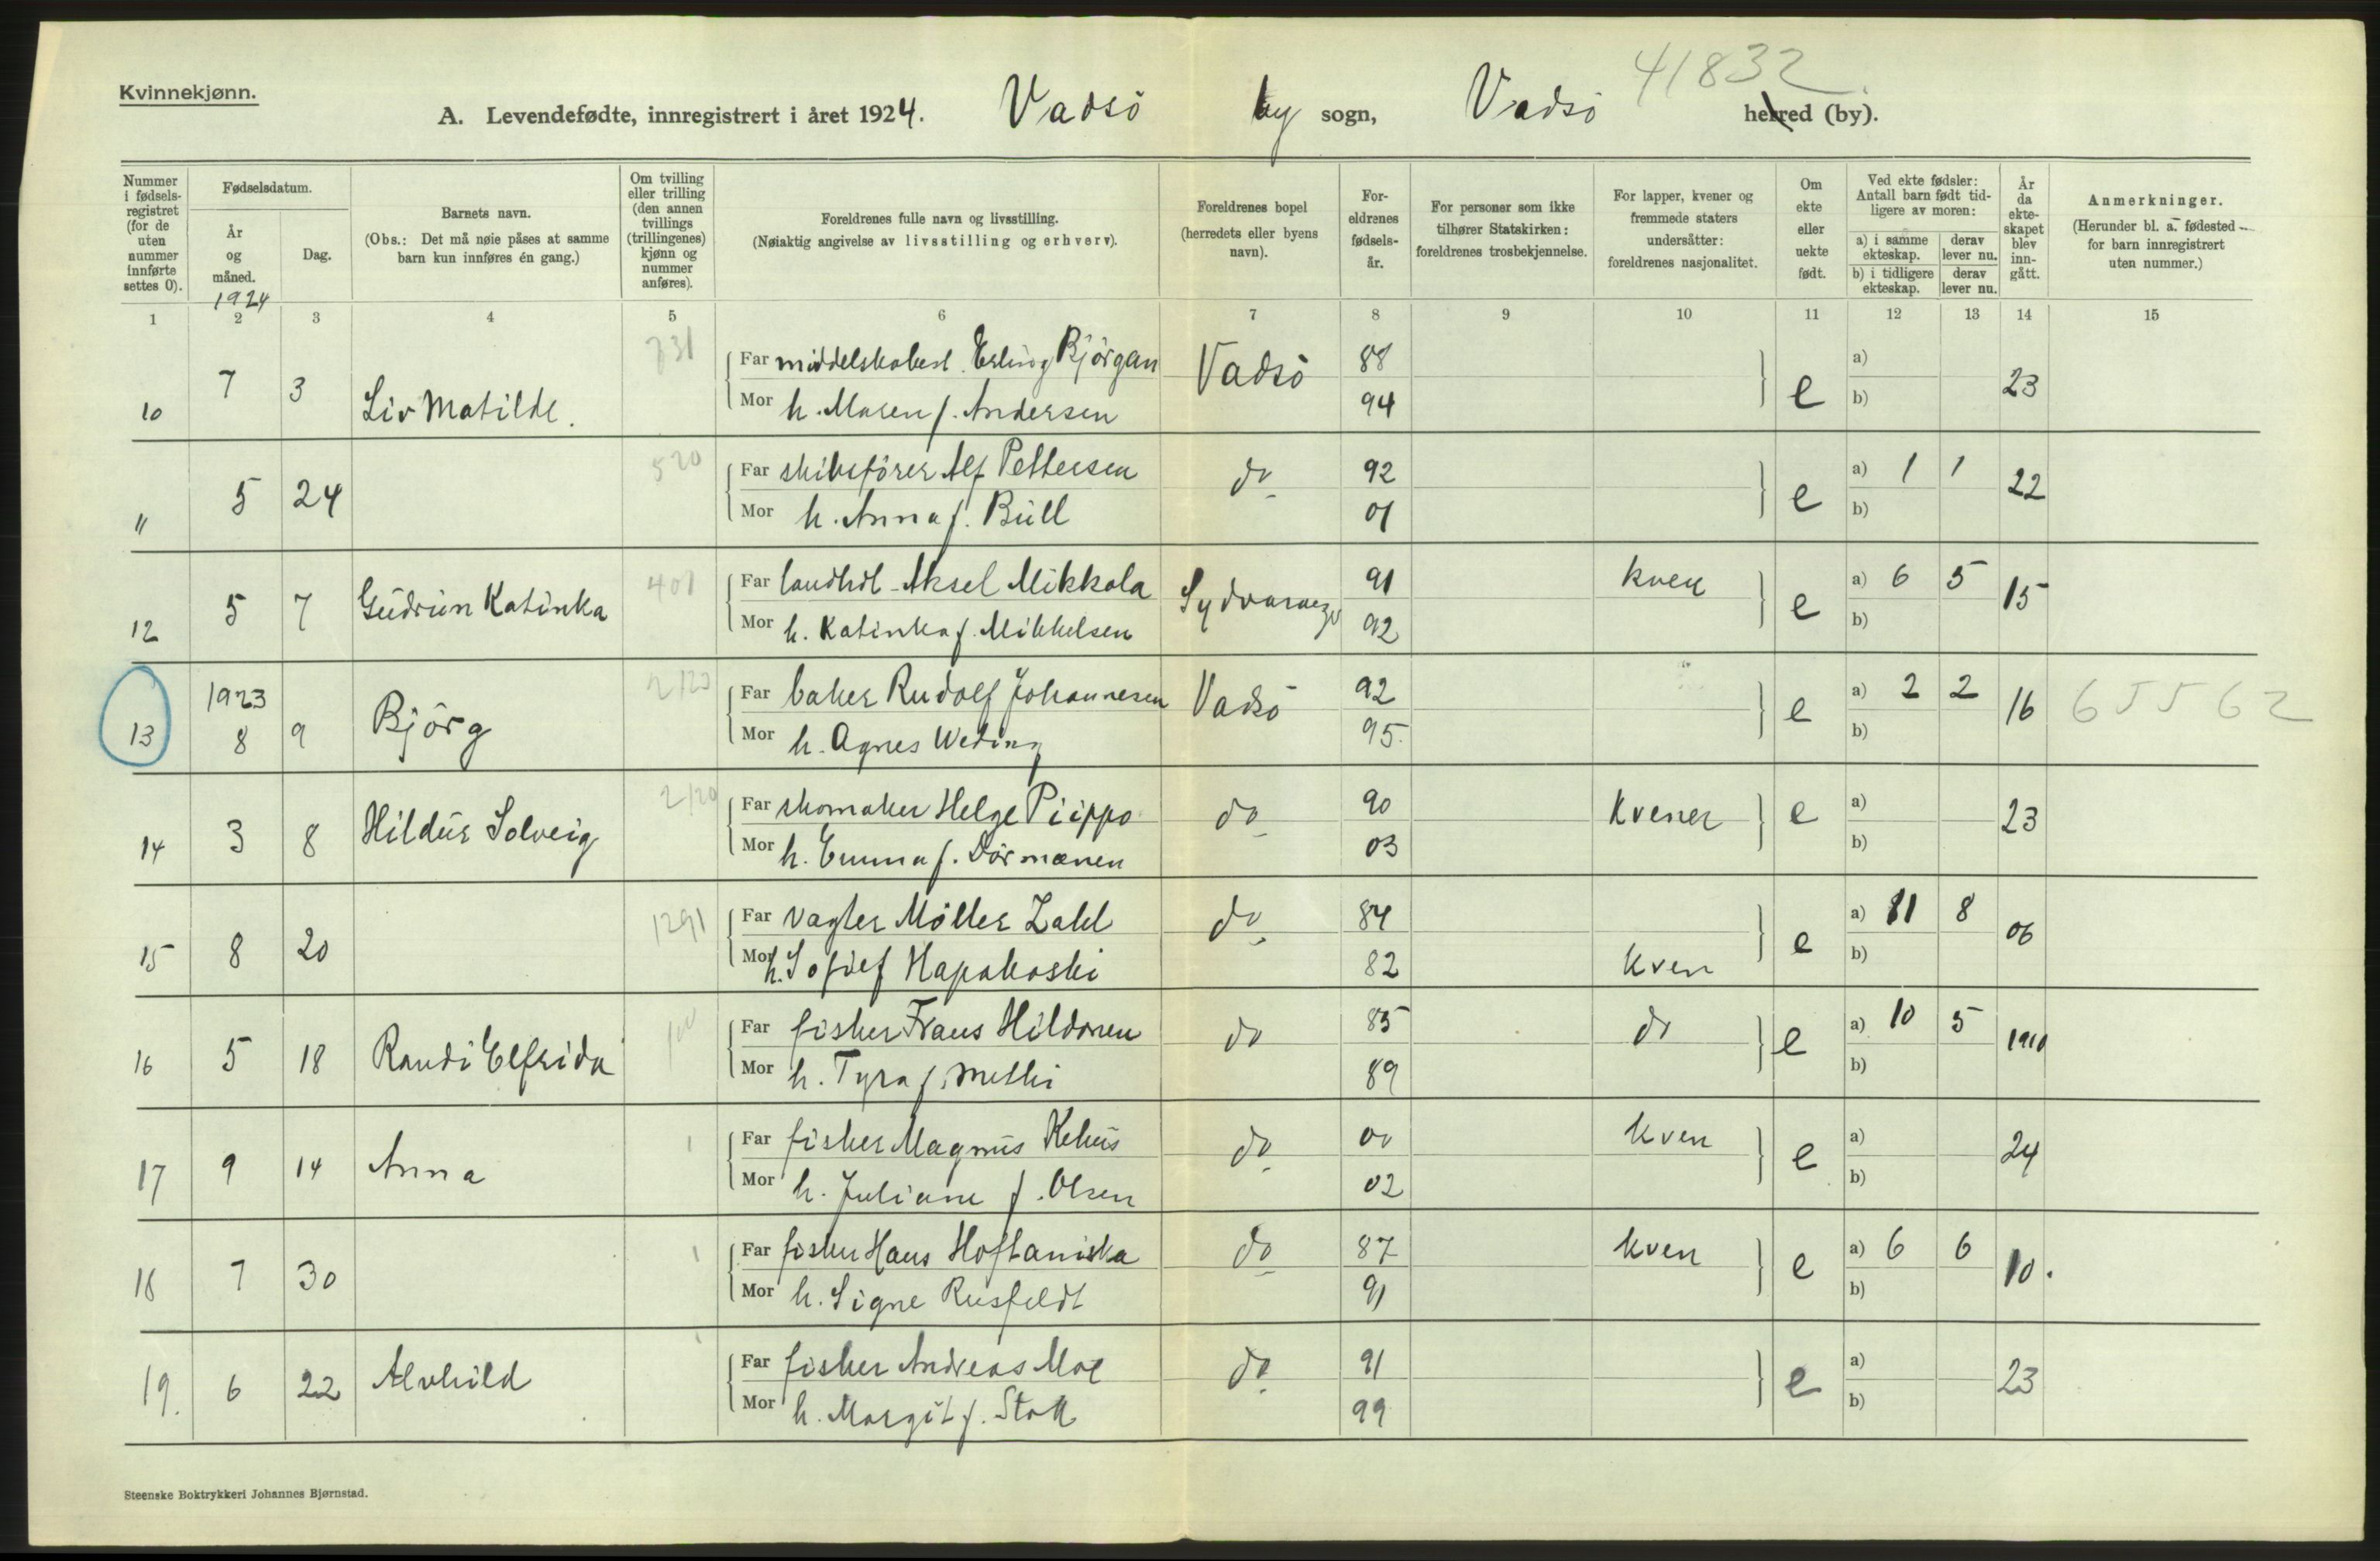 41832
Kvinnekjønn.
A. Levendefødte, innregistrert i året 1924. Vadsö by sogn, Vadsö herred (by).
Nummer i fødselsregistret (for de uten nummer innførte settes 0).
Fødselsdatum.
År og måned.
1924
Dag.
Barnets navn.
(Obs.: Det må nøie påses at samme barn kun innføres én gang.)
Om tvilling eller trilling (den annen tvillings (trillingenes) kjønn og nummer anføres).
Foreldrenes fulle navn og livsstilling.
(Nøiaktig angivelse av livsstilling og erhverv).
Foreldrenes bopel (herredets eller byens navn).
Foreldrenes fødselsår.
For personer som ikke tilhører Statskirken: foreldrenes trosbekjennelse.
For lapper, kvener og fremmede staters undersåtter: foreldrenes nasjonalitet.
Om ekte eller uekte født.
Ved ekte fødsler: Antall barn født tidligere av moren:
a) i samme ekteskap. derav lever nu.
b) i tidligere ekteskap. derav lever nu.
År da ekteskapet blev inngått.
Anmerkninger.
(Herunder bl. a. fødested for barn innregistrert uten nummer.)
1 2 3 4 5 6 7 8 9 10 11 12 13 14 15
10 7 3 Liv Matilde. 731 Far Erling Björgan Vadsö 88 e a) 23
Mor h. Maren f. Andersen 94 b)
11 5 24 520 Far skibsförer Alf Pettersen do 92 e a) 1 1 22
Mor h. Anna f. Bull 01 b)
12 5 7 Gudrun Katinka 401 Far landhdl. Aksel Mikkola Sydvaranger 91 kven e a) 6 5 15
Mor h. Katinka f. Mikkelsen 92 b)
13 1923 8 9 Björg 2123 Far baker Rudolf Johannesen Vadsö 92 e a) 2 2 16 65562
Mor h. Agnes Weding 95. b)
14 3 8 Hildur Solveig 2120 Far skomaker Helge Piippo do 90 Kvener e a) 23
Mor h. Emma f. 03 b)
15 8 20 1291 Far vagter Möller Zahl do 84 e a) 11 8 06
Mor h. Sofie f Hapakoski 82 kven b)
16 5 18 Randi Elfrida 100 Far fisker Frans Hildonen do 85 do e a) 10 5 1910
Mor h. Tyra f. 89 b)
17 9 14 Anna 1 Far fisker Magnus Kehus do 00 kven e a) 24
Mor h. Juliane f. Olsen 02 b)
18 7 30 1 Far fisker Hans Hoftaniska do 87 kven e a) 6 6 10.
Mor h. Signe Rusfeldt 91 b)
19. 6 22 Alvhild 1 Far fisker Andreas Moe do 91 e a) 23
Mor h. Margit f. 99 b)
Steenske Boktrykkeri Johannes Bjørnstad.